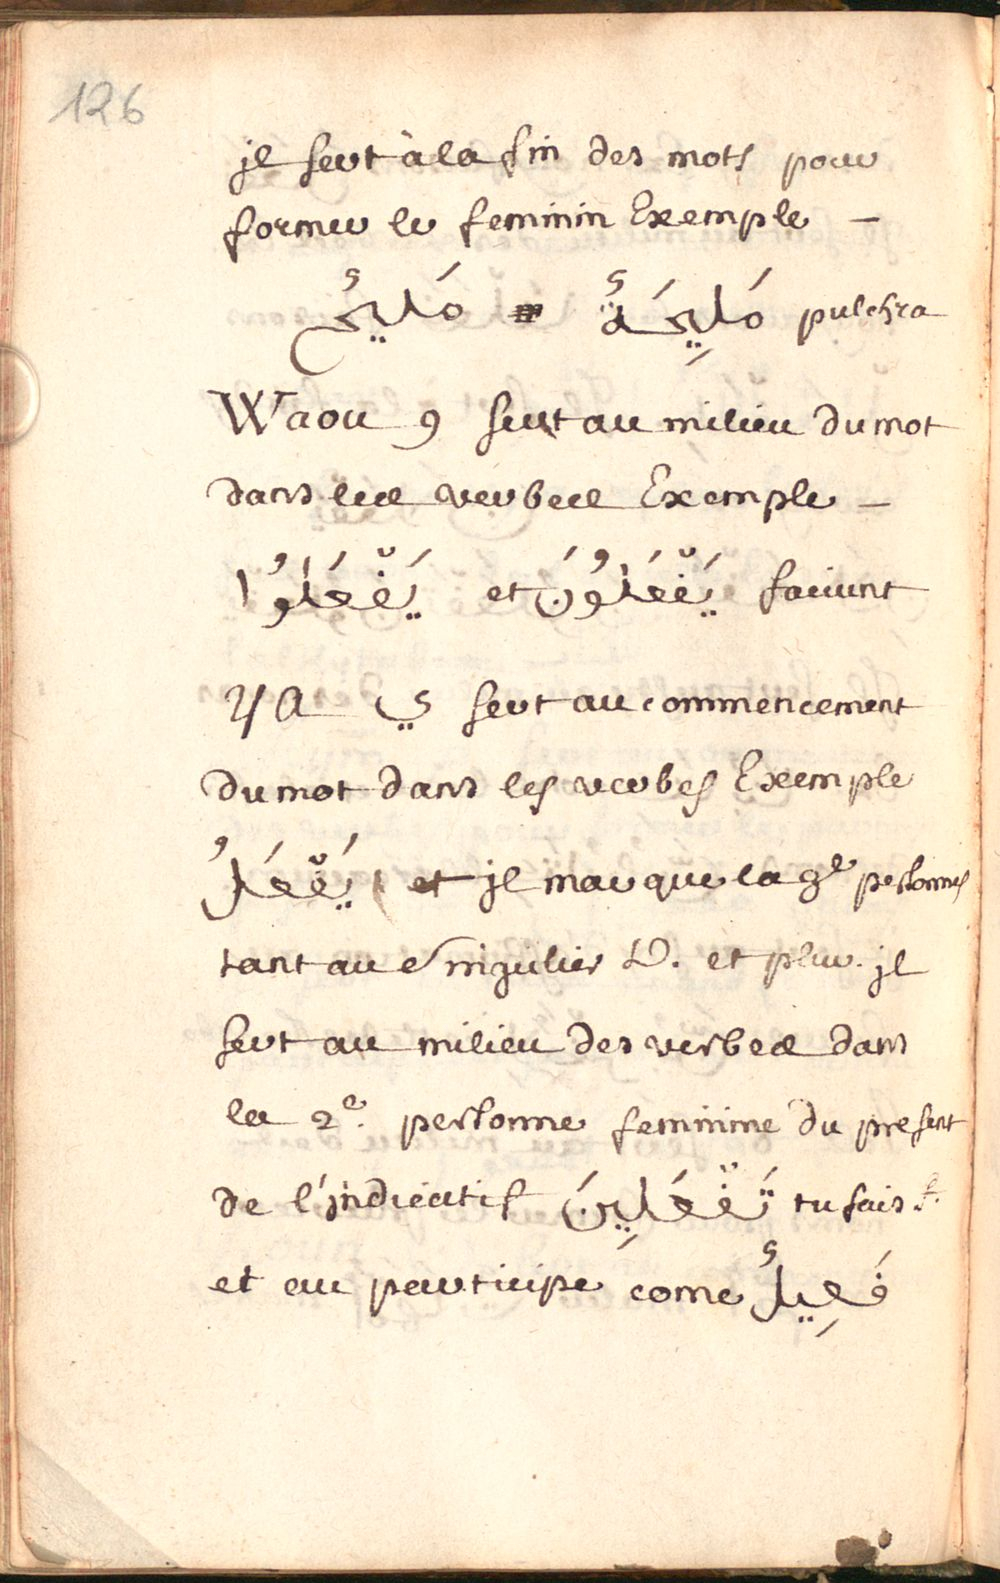 126
jl sert à la fin des mots pour
former le feminin Exemple —
مَليحٌ مَلِيحَةٌ pulchra
Waou و sert au milieu du mot
dans lees verbees Exemple —
يَفْعَلُوا et يَفْعَلُونَ faciunt
ya ي sert au commencement
du mot dans les verbes Exemple
يَفْعَلُ et jl marque la 3e personnes
tant au singulier D. et plur. jl
sert au milieu des verbees dans
la 2e. personne feminine du present
de l'jndicatif تَفْعَلِينَ tu fais f.
et au participe come فَعِيلٌ